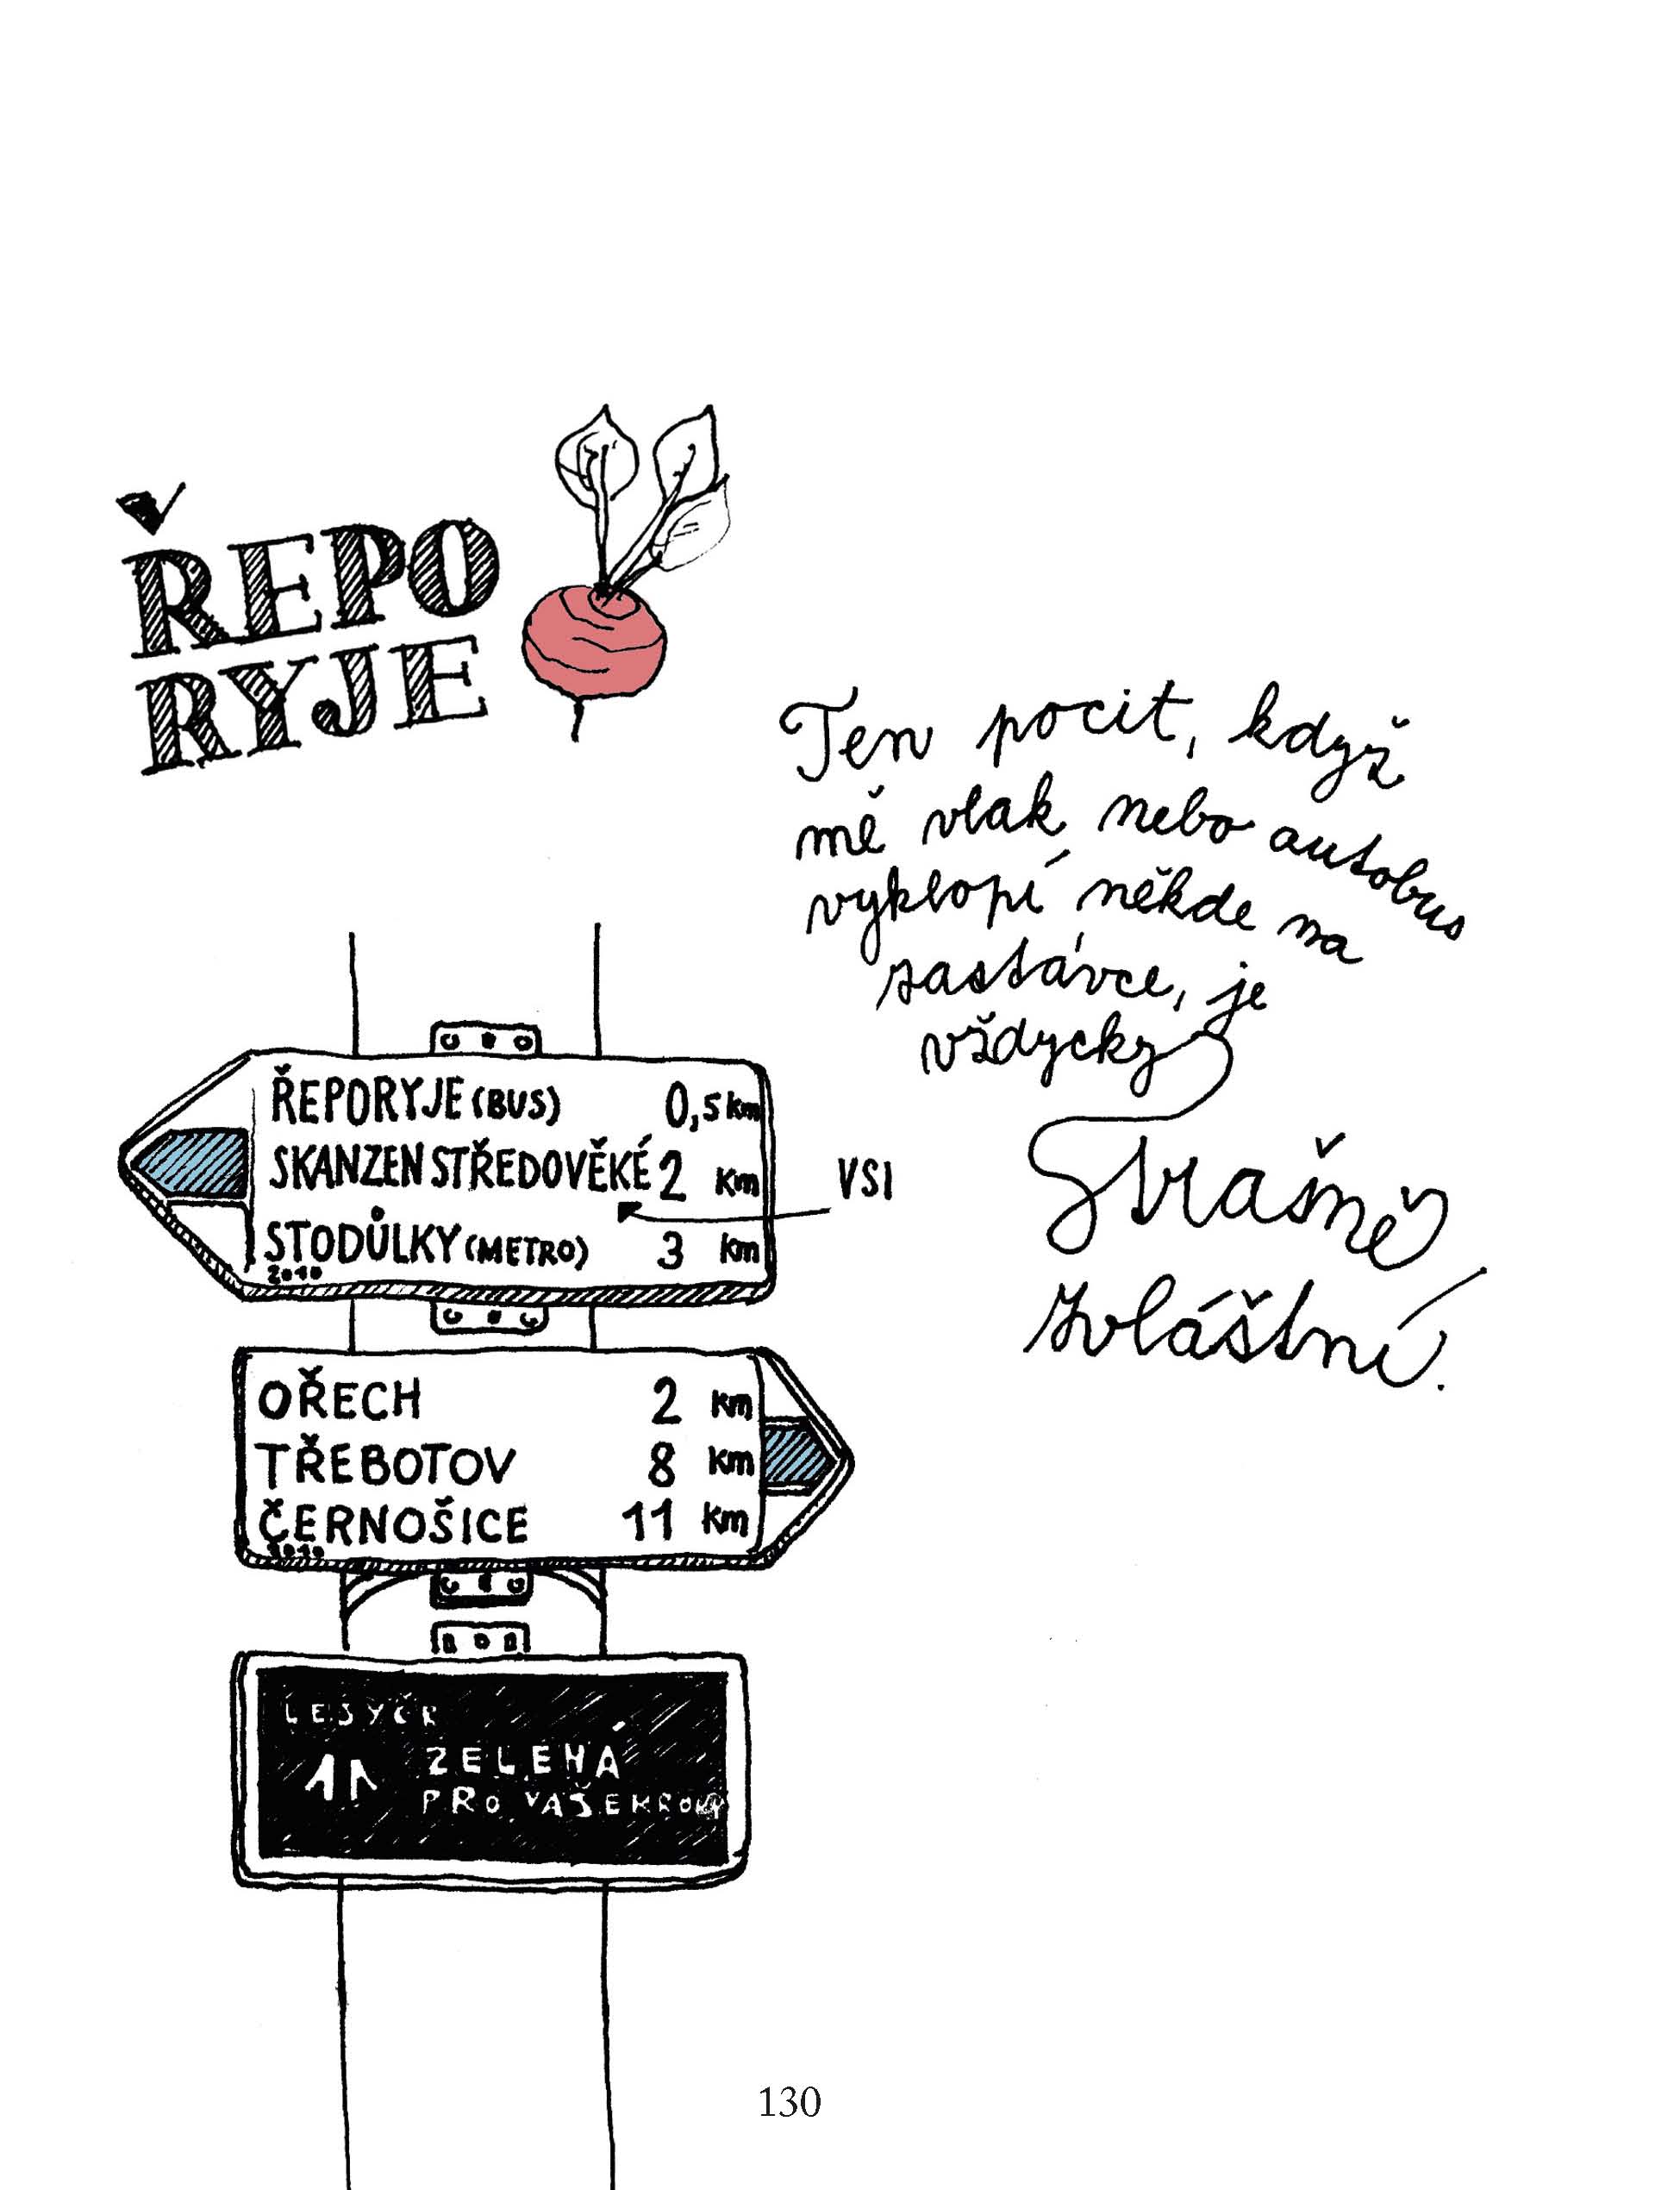 ŘEPO
RYJE
Ten pocit, když
mě vlak nebo autobus
vyklopí někde na
zastávce, je
vždycky
strašně
zvláštní.
ŘEPORYJE (BUS) 0,5 km
SKANZEN STŘEDOVĚKÉ 2 km
VSI
STODŮLKY (METRO) 3 km
2010
OŘECH 2 km
TŘEBOTOV 8 km
ČERNOŠICE 11 km
2010
LESYČR
ZELENÁ
PRO VAŠE KROKY
130